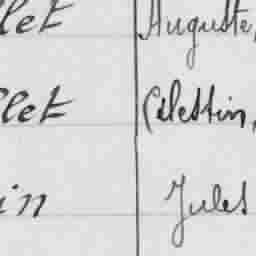 let Auguste,
llet Célestin,
in Jules